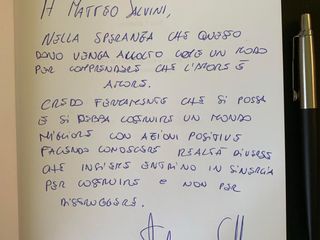 A MATTEO SALVINI,
NELLA SPERANZA CHE QUESTO
DONO VENGA ACCOLTO COME UN MODO
PER COMPRENDERE CHE L'AMORE È
AMORE.
CREDO FERMAMENTE CHE SI POSSA
E SI DEBBA COSTRUIRE UN MONDO
MIGLIORE CON AZIONI POSITIVE
FACENDO CONOSCERE REALTÀ DIVERSE
CHE INSIEME ENTRINO IN SINERGIA
PER COSTRUIRE E NON PER
DISTRUGGERE.